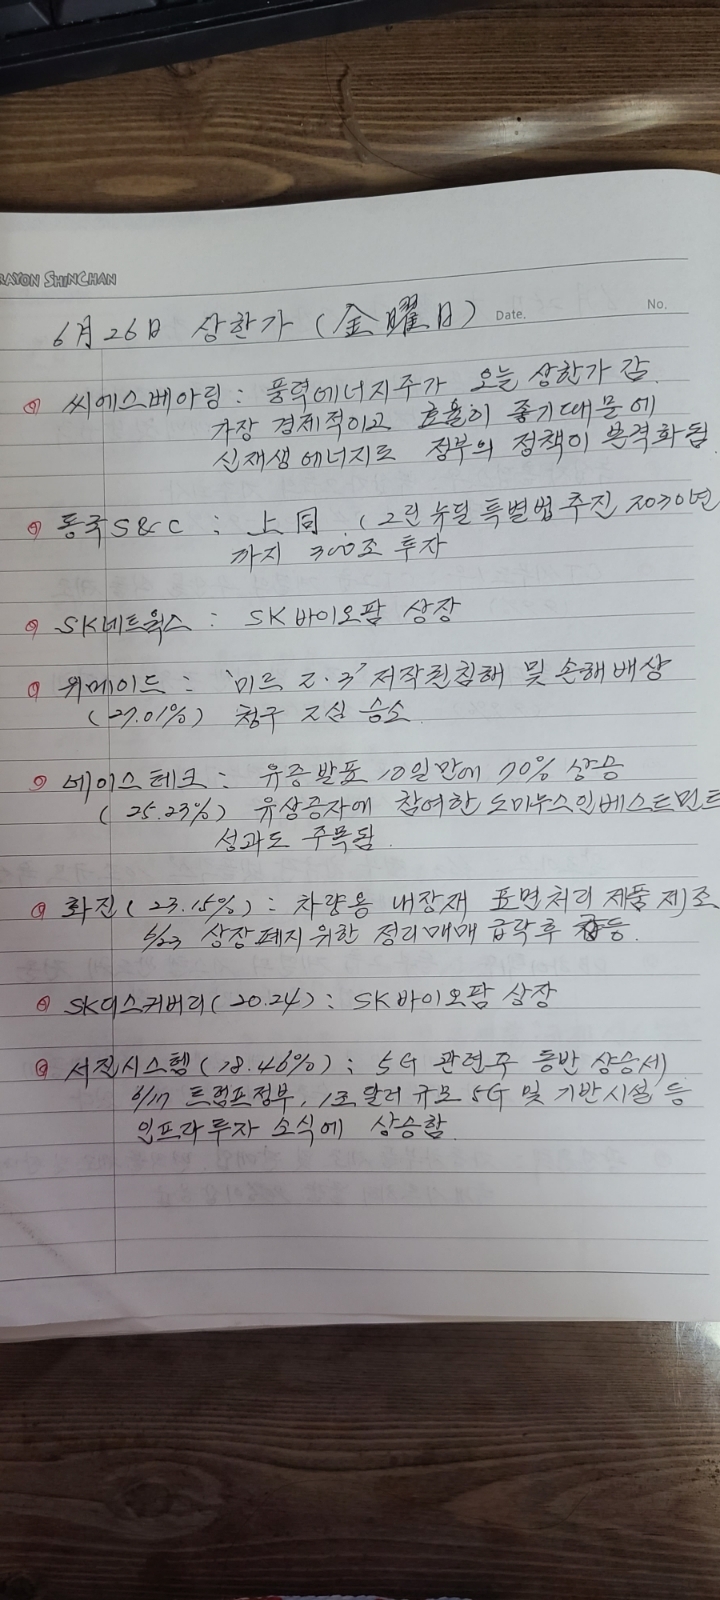 RAYON SHINCHAN
6月 26日 상한가 (金曜日) Date. No.
씨에스베아링 : 풍력에너지주가 오늘 상한가 감.
가장 경제적이고 효율이 좋기때문에
신재생 에너지로 정부의 정책이 본격화됨.
동국S&C : 上同. (그린 뉴딜 특별법추진 2030년
까지 300조 투자
SK네트웍스 : SK바이오팜 상장
위메이드 : '미르 2·3' 저작권침해 및 손해배상
(27.01%) 청구 1심 승소.
에이스테크 : 유증발표 10일만에 70% 상승
(25.23%) 유상증자에 참여한 도미누스인베스트먼트
성과도 주목됨.
화진(23.15%) : 차량용 내장재 표면처리 제품 제조
6/23 상장폐지 위한 정리매매 급락후 급등.
SK디스커버리(20.24) : SK바이오팜 상장
서진시스템(18.46%) : 5G 관련주 동반 상승세)
6/17 트럼프정부, 1조 달러 규모 5G 및 기반시설 등
인프라투자 소식에 상승함.